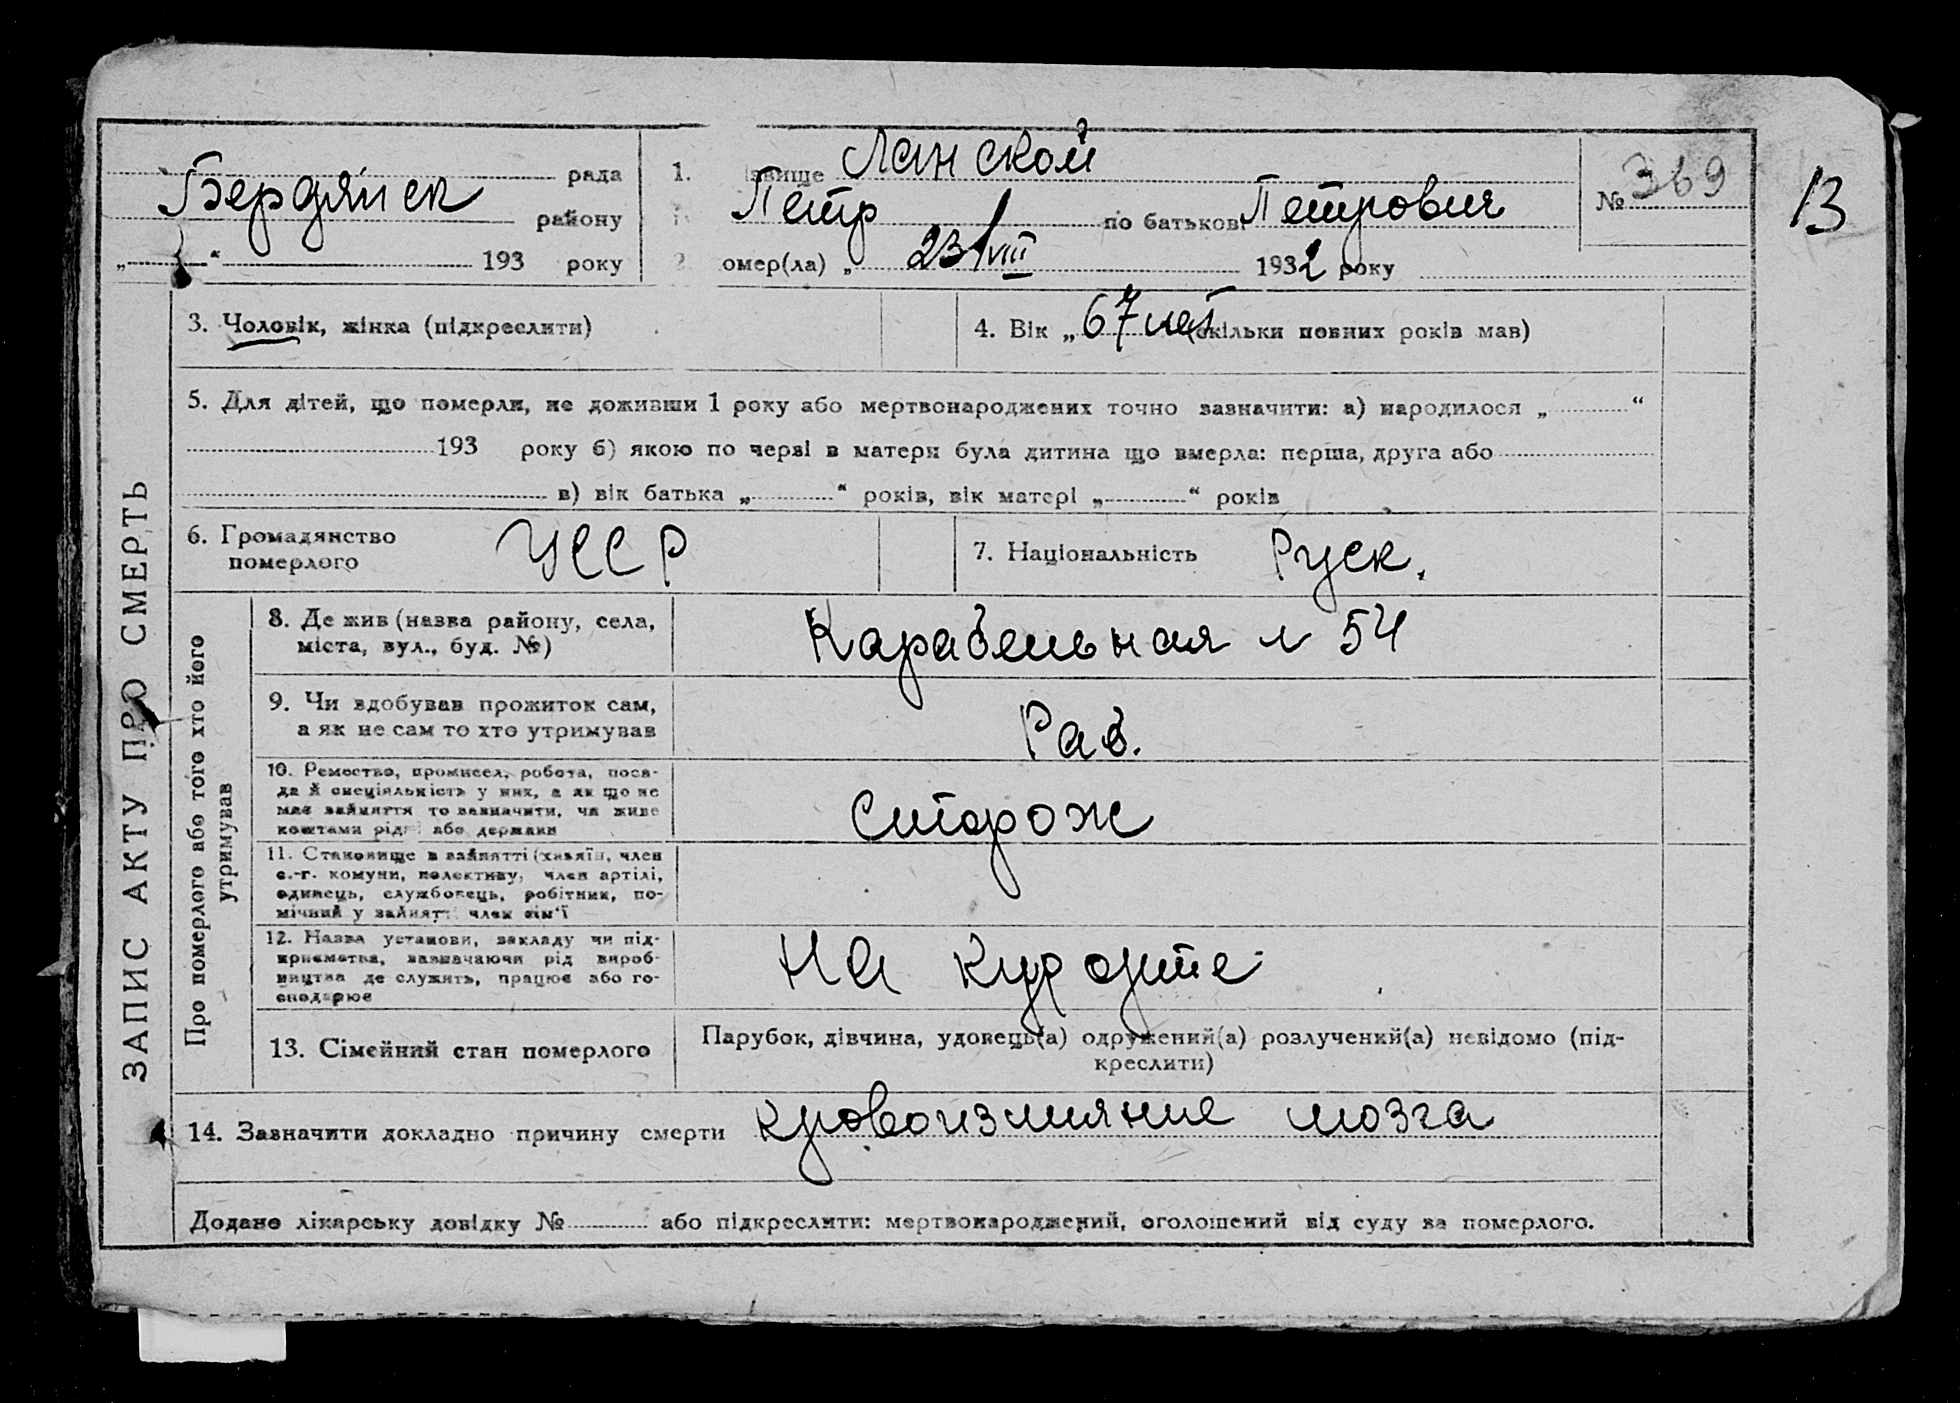 Бердянск рада
району
„ “ 193 року
1. звище Ланской
Петр по батькові Петрович
2 омер(ла) „ 23/VIII 1932 року
№ 369
13
3. Чоловік, жінка (підкреслити)
4. Вік „ 67 лет (скільки повних років мав)
5. Для дітей, що померли, не доживши 1 року або мертвонароджених точно зазначити: а) народилося „ “
193 року б) якою по черзі в матери була дитина що вмерла: перша, друга або
в) вік батька „ “ років, вік матері „ “ років
6. Громадянство
померлого
УССР
7. Національність Руск.
ЗАПИС АКТУ ПРО СМЕРТЬ
Про померлого або того хто його
утримував
8. Де жив (назва району, села,
міста, вул., буд. №)
Карабельная 54
9. Чи здобував прожиток сам,
а як не сам то хто утримував
Раб.
10. Ремество, промисел, робота, поса-
да й спеціяльність у них, а як що не
має зайняття то зазначити, чи живе
коштами рід або держави
Сторож
11. Становище в зайнятті (хазяїн, член
с.-г. комуни, колективу, член артілі,
одинець, службовець, робітник, по-
мічний у зайнятт член сім'ї
12. Назва установи, закладу чи під-
приємства, зазначаючи рід вироб-
ництва де служить, працює або го-
сподарює
На курорте
13. Сімейний стан померлого
Парубок, дівчина, удовець(а) одружений(а) розлучений(а) невідомо (під-
креслити)
14. Зазначити докладно причину смерти кровоизлияние мозга
Додано лікарську довідку № або підкреслити: мертвонароджений, оголошений від суду за померлого.